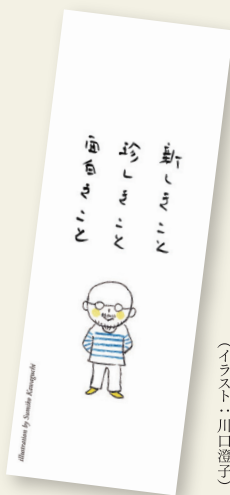 新しきこと
珍しきこと
面白きこと
illustration by Sumiko Kawaguchi
（イラスト：川口澄子）